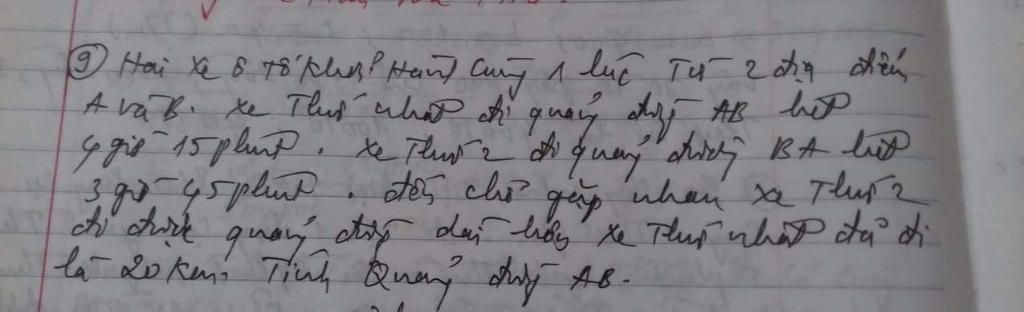 ⑨ Hai xe ô tô khởi hành cùng 1 lúc từ 2 địa điểm
A và B. xe thứ nhất đi quãng đường AB hết
4 giờ 15 phút. xe thứ 2 đi quãng đường BA hết
3 giờ 45 phút. đến chỗ gặp nhau xe thứ 2
đi được quãng đường dài hơn xe thứ nhất đã đi
là 20 km. Tính Quãng đường AB.